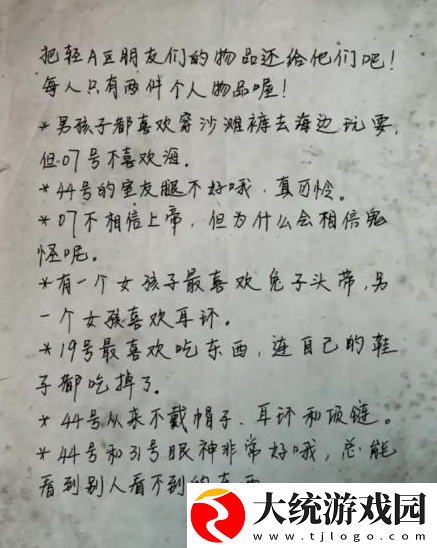 把轻A区朋友们的物品还给他们吧！
每人只有两件个人物品喔！
*男孩子都喜欢穿沙滩裤去海边玩耍，
但07号不喜欢海。
*44号的室友腿不好哦，真可怜。
*07不相信上帝，但为什么会相信鬼
怪呢。
*有一个女孩子最喜欢兔子头带，另
一个女孩喜欢耳环。
*19号最喜欢吃东西，连自己的鞋
子都吃掉了。
*44号从来不戴帽子、耳环和项链。
*44号和31号眼神非常好哦，总能
看到别人看不到的
大统游戏园
www.tjlogo.com